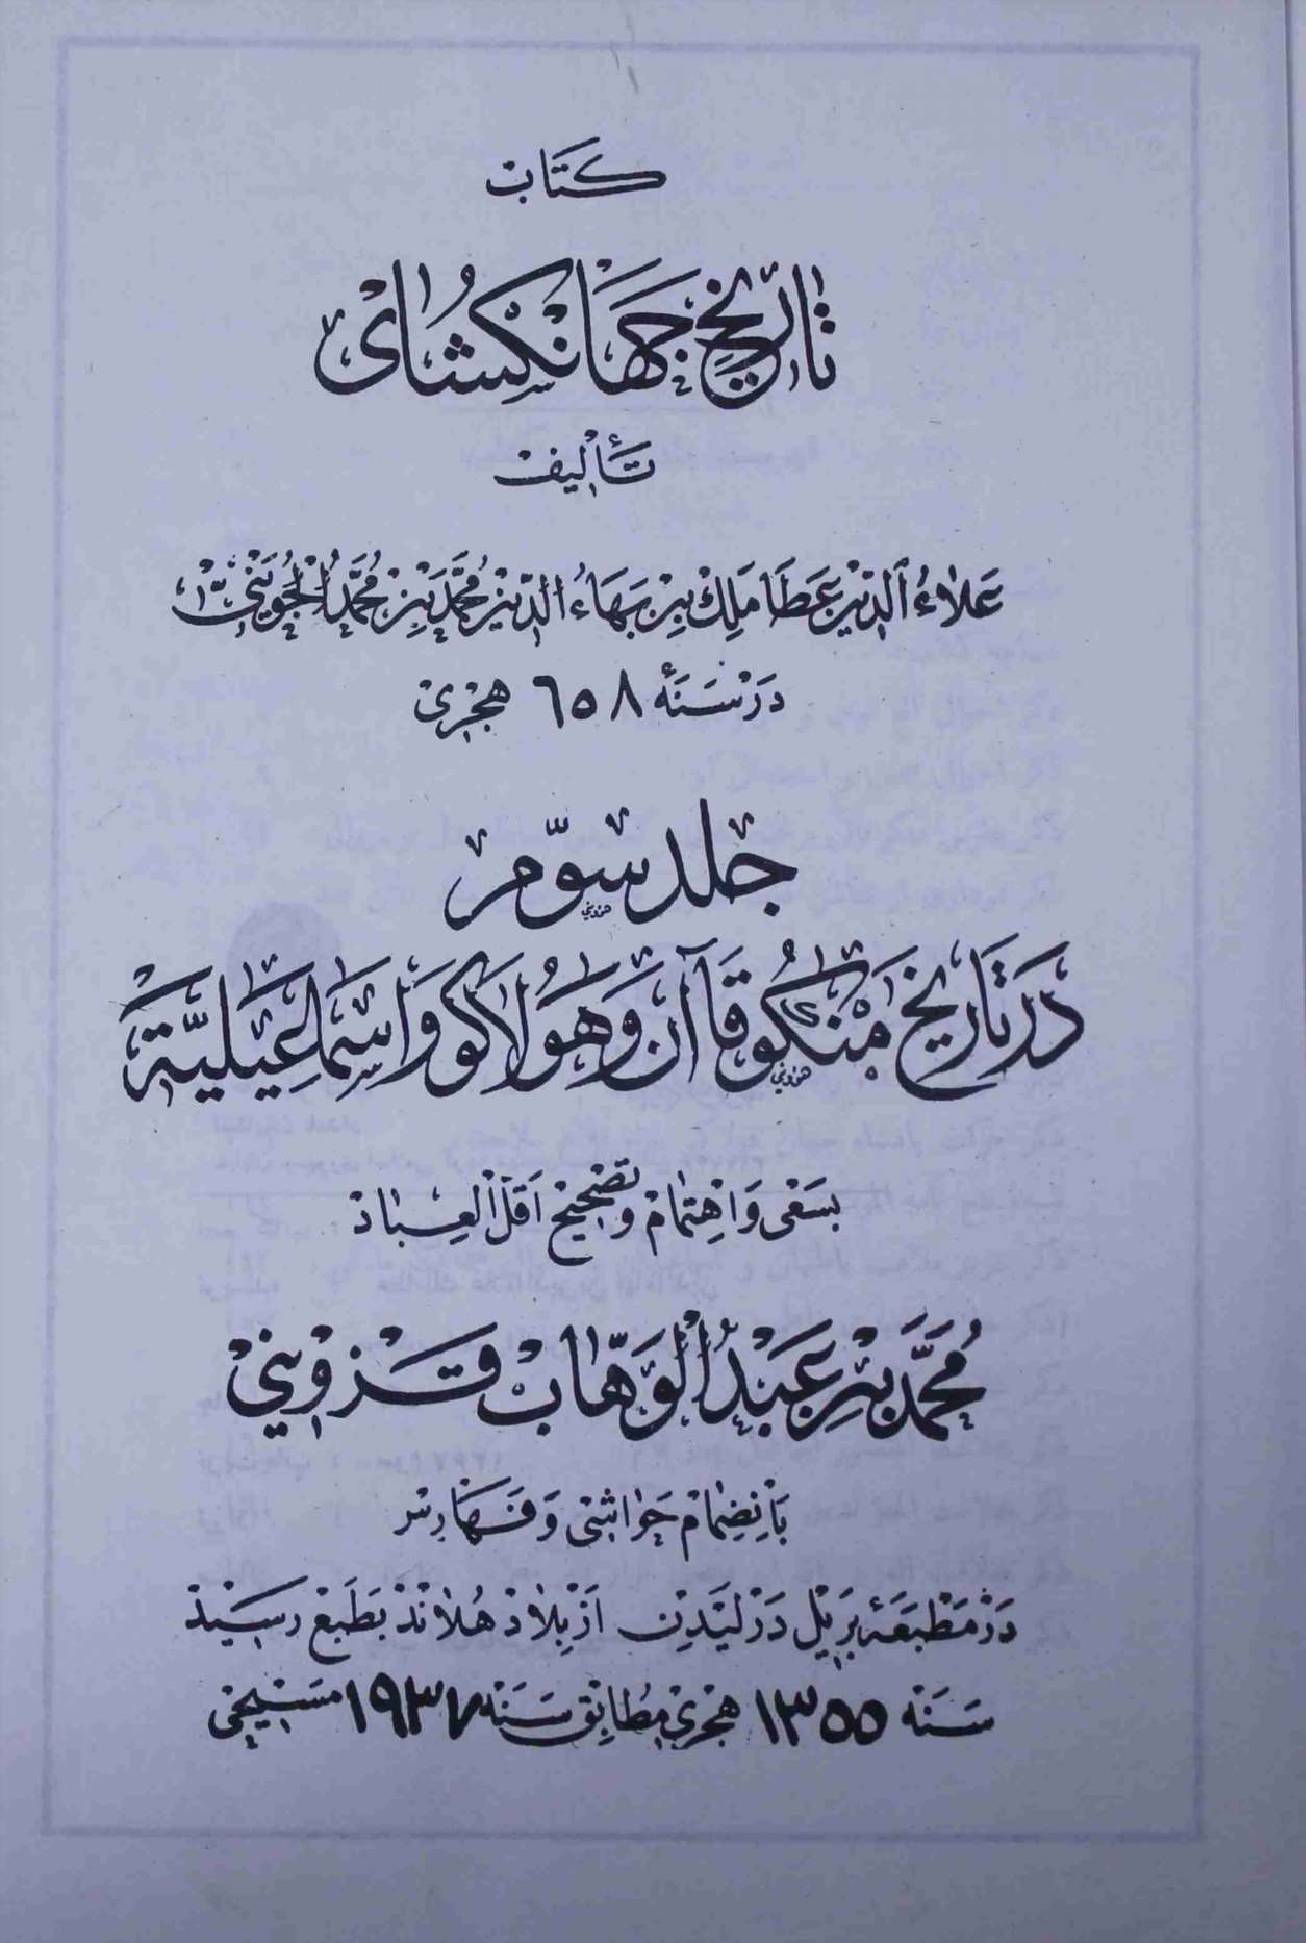 كتاب
تاريخ جهانكشاى
تأليف
علاء الدين عطا ملك بن بهاء الدين محمد بن محمد الجوينى
در سنهٔ ٦٥٨ هجرى
جلد سوّم
در تاريخ منكو قاآن و هولاكو و اسماعيليّة
بسعى و اهتمام و تصحيح اقلّ العباد
محمّد بن عبد الوهّاب قزوينى
بانضمام حواشى و فهارس
در مطبعهٔ بريل در ليدن از بلاد هلاند بطبع رسيد
سنه ١٣٥٥ هجرى مطابق سنه ١٩٣٧ مسيحى